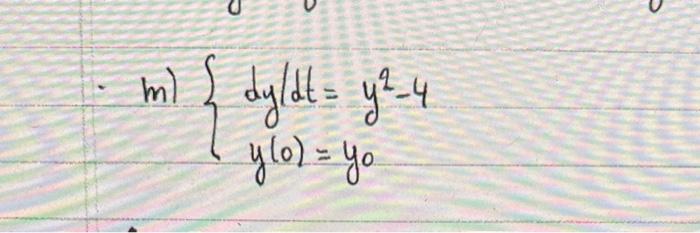 m) { dy/dt = y²-4
y(0) = y₀